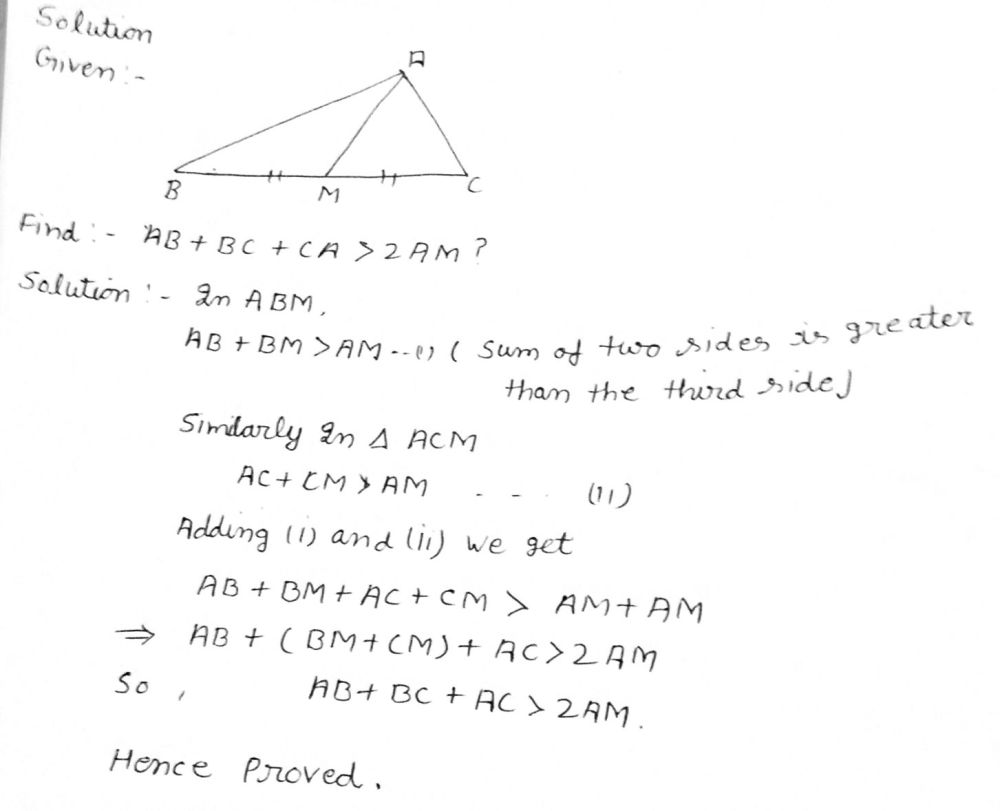 Solution
Given :-
A
B
M
C
Find :- AB + BC + CA > 2AM ?
Solution :- In ABM,
AB + BM > AM --(i) ( Sum of two sides is greater
than the third side)
Similarly In Δ ACM
AC + CM > AM - - - (ii)
Adding (i) and (ii) we get
AB + BM + AC + CM > AM + AM
⇒ AB + (BM + CM) + AC > 2AM
So, AB + BC + AC > 2AM.
Hence Proved.